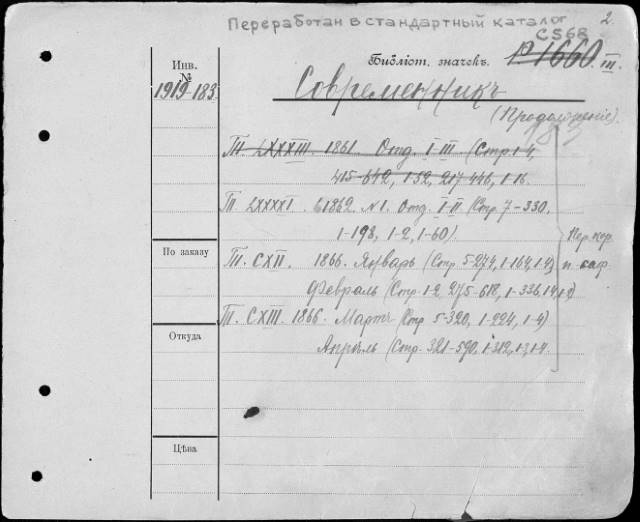 Переработан в стандартный каталог 2.
С568
Инв.
№
1919-183
Библіот. значекъ. Р.1660. III.
Современникъ
(Продолженіе).
Т. LXXXIII. 1861. Отд. I-III (Стр. 1-4,
415-642, 1-52, 217-446, 1-16.
Т. LXXXXI. 1862. N1. Отд. I-II (Стр. 7-330,
1-198, 1-2, 1-60).
По заказу
Т. CXII. 1866. Январь (Стр. 5-274, 1-164, 1-4)
Февраль (Стр. 1-2, 275-618, 1-336,
Т. CXIII. 1866. Мартъ (Стр 5-320, 1-224, 1-4)
Апрѣль (Стр. 321-590, 1-312,
Пер. кор.
и саф.
Откуда
Цѣна